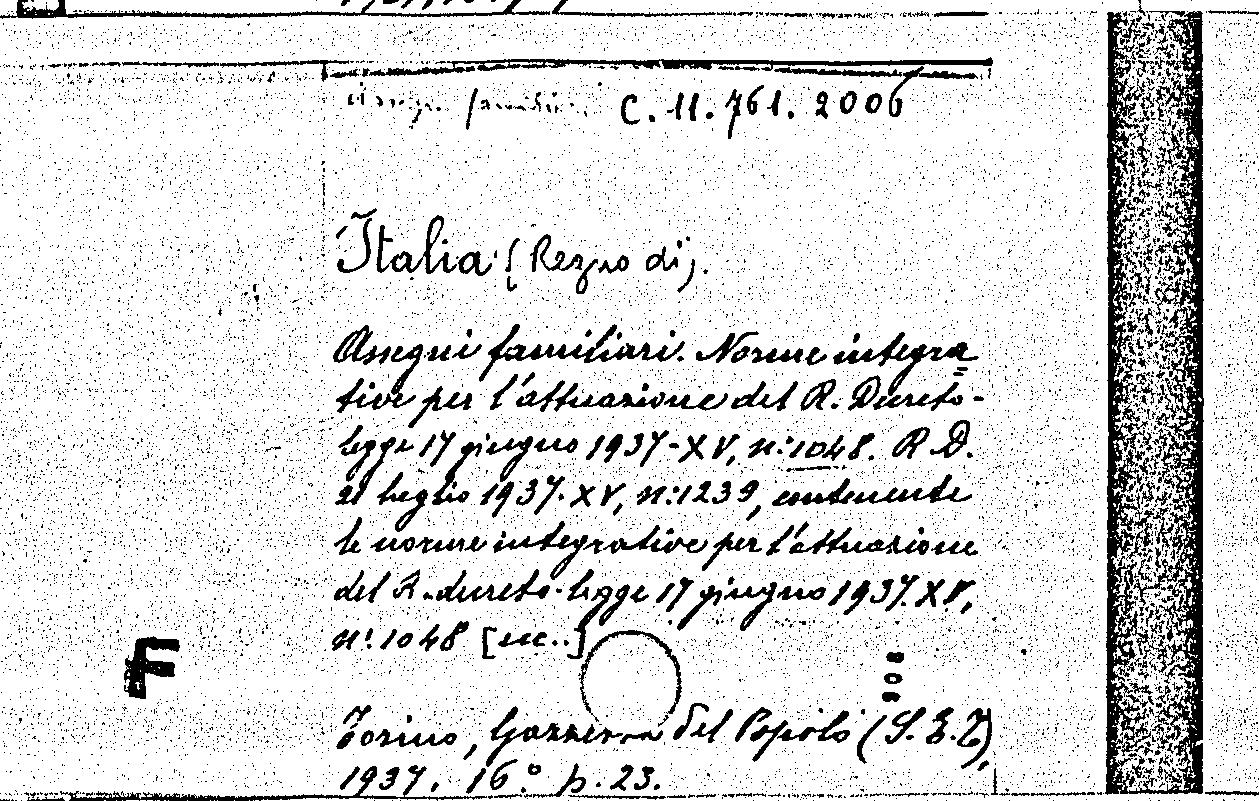 Assegni familiari. C. 11. 761. 2006
Italia (Regno di).
Assegni familiari. Norme integra=
tive per l'attuazione del R. Decreto-
legge 17 giugno 1937-XV, n: 1048. R. D.
21 luglio 1937. XV, n: 1239, contenente
le norme integrative per l'attuazione
del R. decreto-legge 17 giugno 1937. XV,
n: 1048 [ecc..]
F
908
Torino, Gazzetta del Popolo (S. E. T),
1937. 16° p. 23.